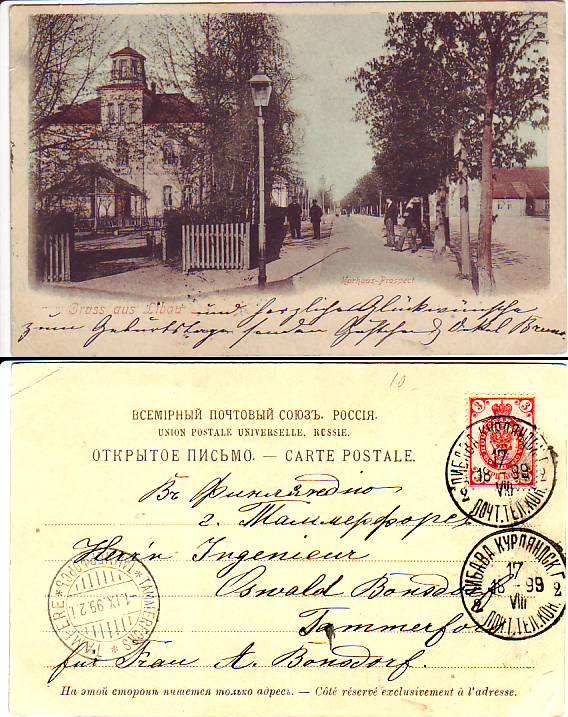 Kurhaus-Prospect
Gruss aus Libau und herzliche Glückwünsche
zum Geburtstage senden Gustchen & Onkel Bruno
10
ВСЕМІРНЫЙ ПОЧТОВЫЙ СОЮЗЪ. РОССІЯ.
UNION POSTALE UNIVERSELLE. RUSSIE.
ОТКРЫТОЕ ПИСЬМО. — CARTE POSTALE.
3 3
ЛИБАВА КУРЛЯНДСК. Г.
17
18 - 99
VIII
2 2
ПОЧТ.ТЕЛ.КОН.
Въ Финляндію
г. Таммерфорсъ
Herrn Ingenieur
Oswald Bonsdorf
Tammerfors
für Frau A. Bonsdorf.
ЛИБАВА КУРЛЯНДСК. Г.
17
18 - 99
VIII
2 2
ПОЧТ.ТЕЛ.КОН.
TAMMERFORS * ТАММЕРФОРСЪ * TAMPERE
1.IX.99.2
На этой сторонѣ пишется только адресъ. — Côté réservé exclusivement à l'adresse.